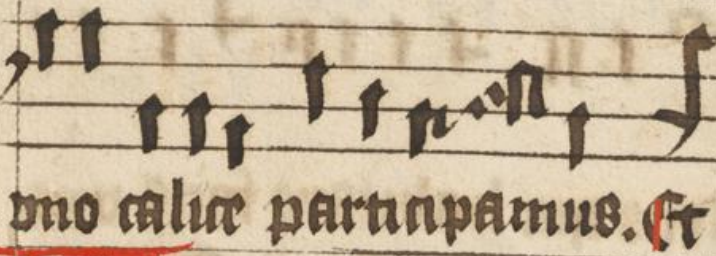 vno calice participamus. Et